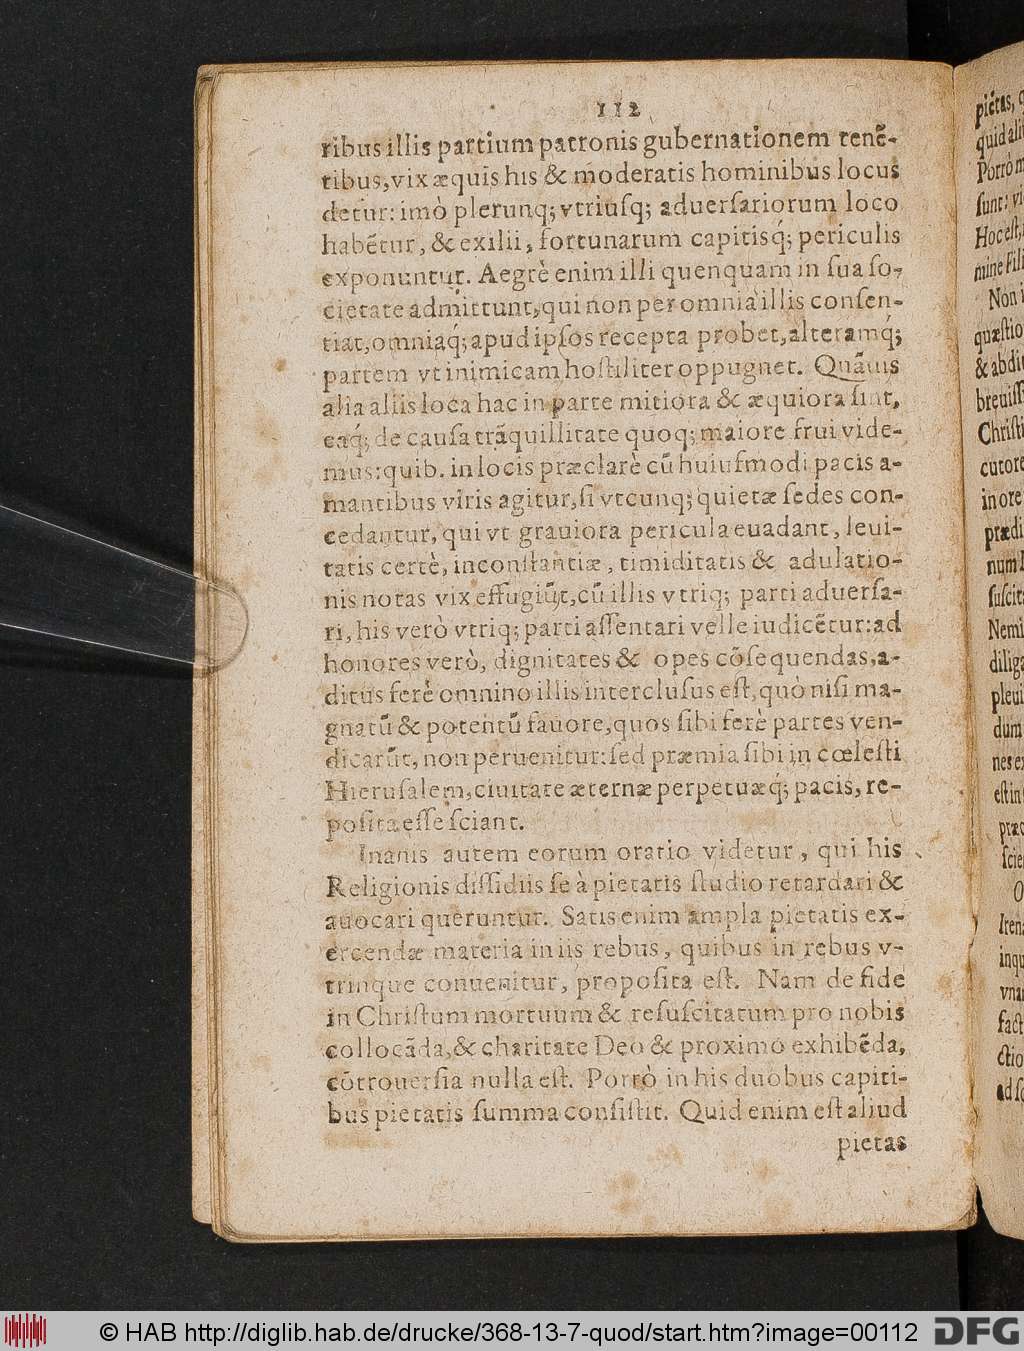 112
ribus illis partium patronis gubernationem tenẽ-
tibus, vix æquis his & moderatis hominibus locus
detur: imò plerunq; vtriusq; aduersariorum loco
habẽtur, & exilii, fortunarum capitisq́; periculis
exponuntur. Aegrè enim illi quenquam in sua so-
cietate admittunt, qui non per omnia illis consen-
tiat, omniaq́; apud ipsos recepta probet, alteramq́;
partem vt inimicam hostiliter oppugnet. Quãuis
alia aliis loca hac in parte mitiora & æquiora sint,
eaq́; de causa trãquillitate quoq; maiore frui vide-
mus: quib. in locis præclarè cũ huiusmodi pacis a-
mantibus viris agitur, si vtcunq; quietæ sedes con-
cedantur, qui vt grauiora pericula euadant, leui-
tatis certè, inconstantiæ, timiditatis & adulatio-
nis notas vix effugiũt, cũ illis vtriq; parti aduersa-
ri, his verò vtriq; parti assentari velle iudicẽtur: ad
honores verò, dignitates & opes cõsequendas, a-
ditus ferè omnino illis interclusus est, quò nisi ma-
gnatũ & potentũ fauore, quos sibi ferè partes ven-
dicarũt, non peruenitur: sed præmia sibi in cœlesti
Hierusalem, ciuitate æternæ perpetuæq́; pacis, re-
posita esse sciant.
Inanis autem eorum oratio videtur, qui his
Religionis dissidiis se à pietatis studio retardari &
auocari queruntur. Satis enim ampla pietatis ex-
ercendæ materia in iis rebus, quibus in rebus v-
trinque conuenitur, proposita est. Nam de fide
in Christum mortuum & resuscitatum pro nobis
collocãda, & charitate Deo & proximo exhibẽda,
cõtrouersia nulla est. Porrò in his duobus capiti-
bus pietatis summa consistit. Quid enim est aliud
pietas
quid ali
Porrò
sunt: vi
Hoc est,
mine Fili
Non i
quæstio
& abdi
breuiss
Christi
cutore
in ore
prædi
num
suscit
Nemi
dilig
pleui
dum
nes ex
est in
præc
scie
Iren
inqu
vna
fact
ctio
© HAB http://diglib.hab.de/drucke/368-13-7-quod/start.htm?image=00112
DFG